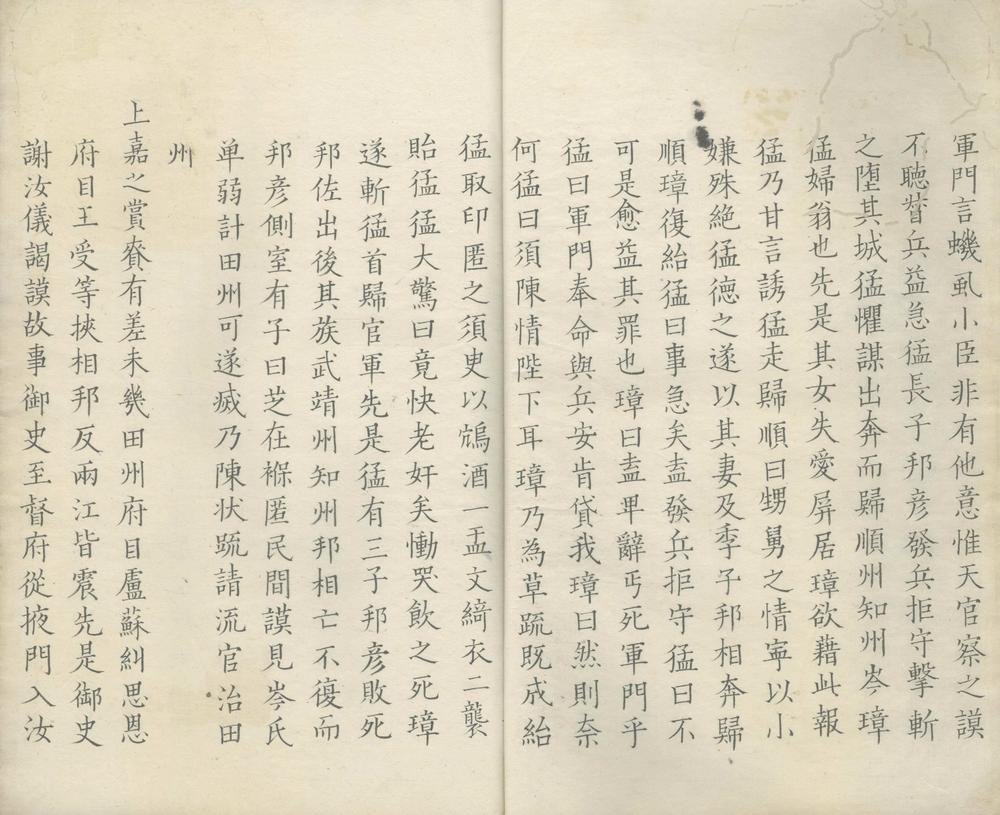 軍門言蟣虱小臣非有他意惟天官察之謨
不聽督兵益急猛長子邦彥發兵拒守擊斬
之墮其城猛懼謀出奔而歸順州知州岑璋
猛婦翁也先是其女失愛屏居璋欲藉此報
猛乃甘言誘猛走歸順曰甥舅之情寧以小
嫌殊絕猛德之遂以其妻及季子邦相奔歸
順璋復紿猛曰事急矣盍發兵拒守猛曰不
可是愈益其罪也璋曰盍卑辭丐死軍門乎
猛曰軍門奉命與兵安肯貸我璋曰然則奈
何猛曰須陳情陛下耳璋乃為草疏既成紿
猛取印匿之須史以鴆酒一盂文綺衣二襲
貽猛猛大驚曰竟快老奸矣慟哭飲之死璋
遂斬猛首歸官軍先是猛有三子邦彥敗死
邦佐出後其族武靖州知州邦相亡不復而
邦彥側室有子曰芝在褓匿民間謨見岑氏
单弱計田州可遂威乃陳状疏請流官治田
州
上嘉之賞賚有差未幾田州府目盧蘇糾思恩
府目王受等挾相邦反兩江皆震先是御史
謝汝儀謁謨故事御史至督府從掖門入汝